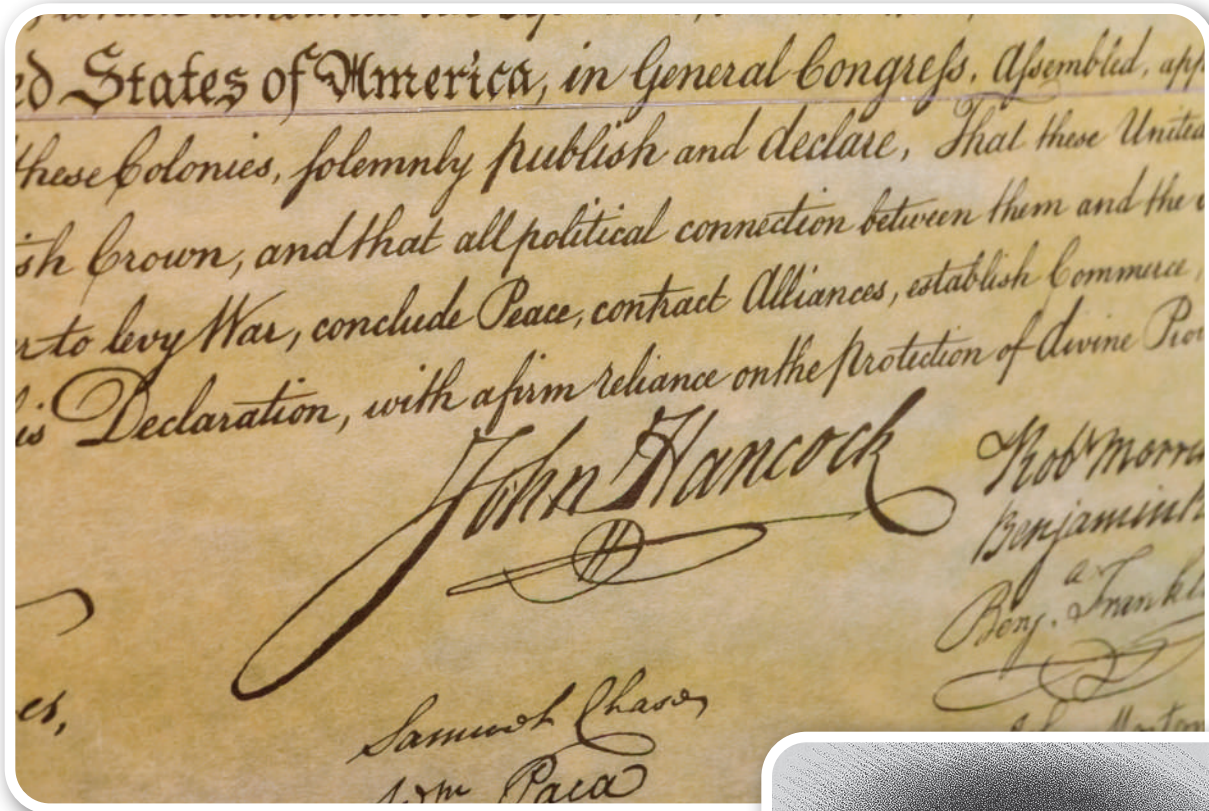 ed States of America, in General Congreſs, Aſsembled, app
these Colonies, solemnly publish and declare, That these United
ish Crown, and that all political connection between them and the
er to levy War, conclude Peace, contract Alliances, establish Commerce,
is Declaration, with a firm reliance on the protection of divine Prov
John Hancock
Rob^t Morri
Benjamin R
Benj. Frankl
es,
Samuel Chase
Wm Paca
Morton